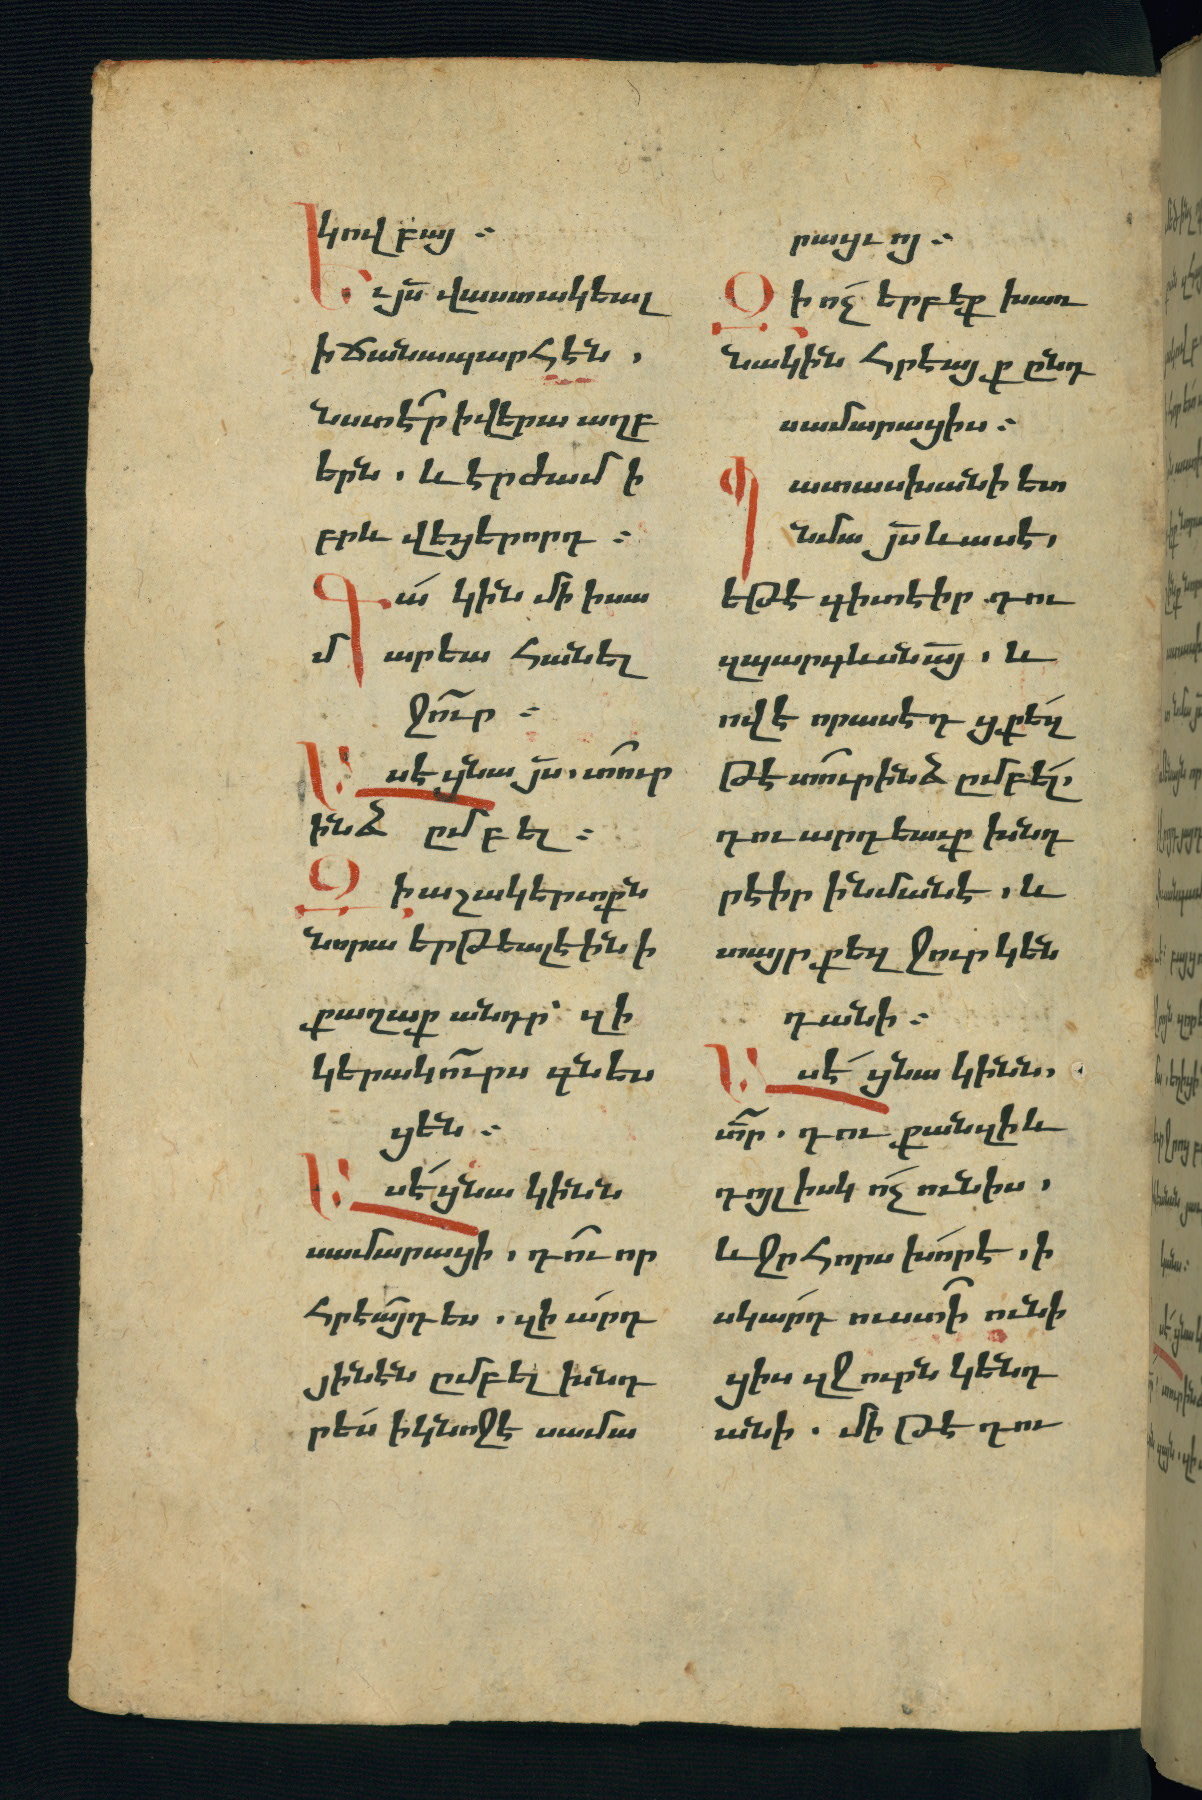 կովբայ ։
Եւ յս̅ վաստակեալ
ի ճանապարհէն ,
նստէր ի վերա աղբ
երն . և էր ժամ ի
բրև վեցերորդ ։
Գա՛ կին մի ի սա
մարեա հանել
ջուր ։
Ասէ ցնա յս̅ . տուր
ինձ ըմբել ։
Զի աշակերտքն
նորա երթեալ էին ի
քաղաք անդր՝ զի
կերակուրս գնես
ցեն ։
Ասէ՛ ցնա կինն
սամարացի , դու որ
հրեայդ ես , զի ա՛րդ
յինէն ըմբել խնդ
րե՛ս ի կնոջէ սամա
րացւոյ ։
Զի ո՛չ երբեք խառ
նակին հրեայք ընդ
սամարացիս ։
Պատասխանի ետ
նմա յս̅ և ասէ ,
եթէ գիտէիր դու
զպարգևսն ա̅յ , և
ով է որ ասէդ ց քե՛զ
թէ տուր ինձ ըմբել ,
դու արդեաւք խնդ
րէիր ի նմանէ , և
տայր քեզ ջուր կեն
դանի ։
Ասէ՛ ցնա կինն ,
տ̅ր . դու քանզի և
դոյլ իսկ ո՛չ ունիս ,
և ջրհորս խո՛ր է , ի
սկ ա՛րդ ուստի ունի
ցիս զջուրն կենդ
անի . մի թէ դու